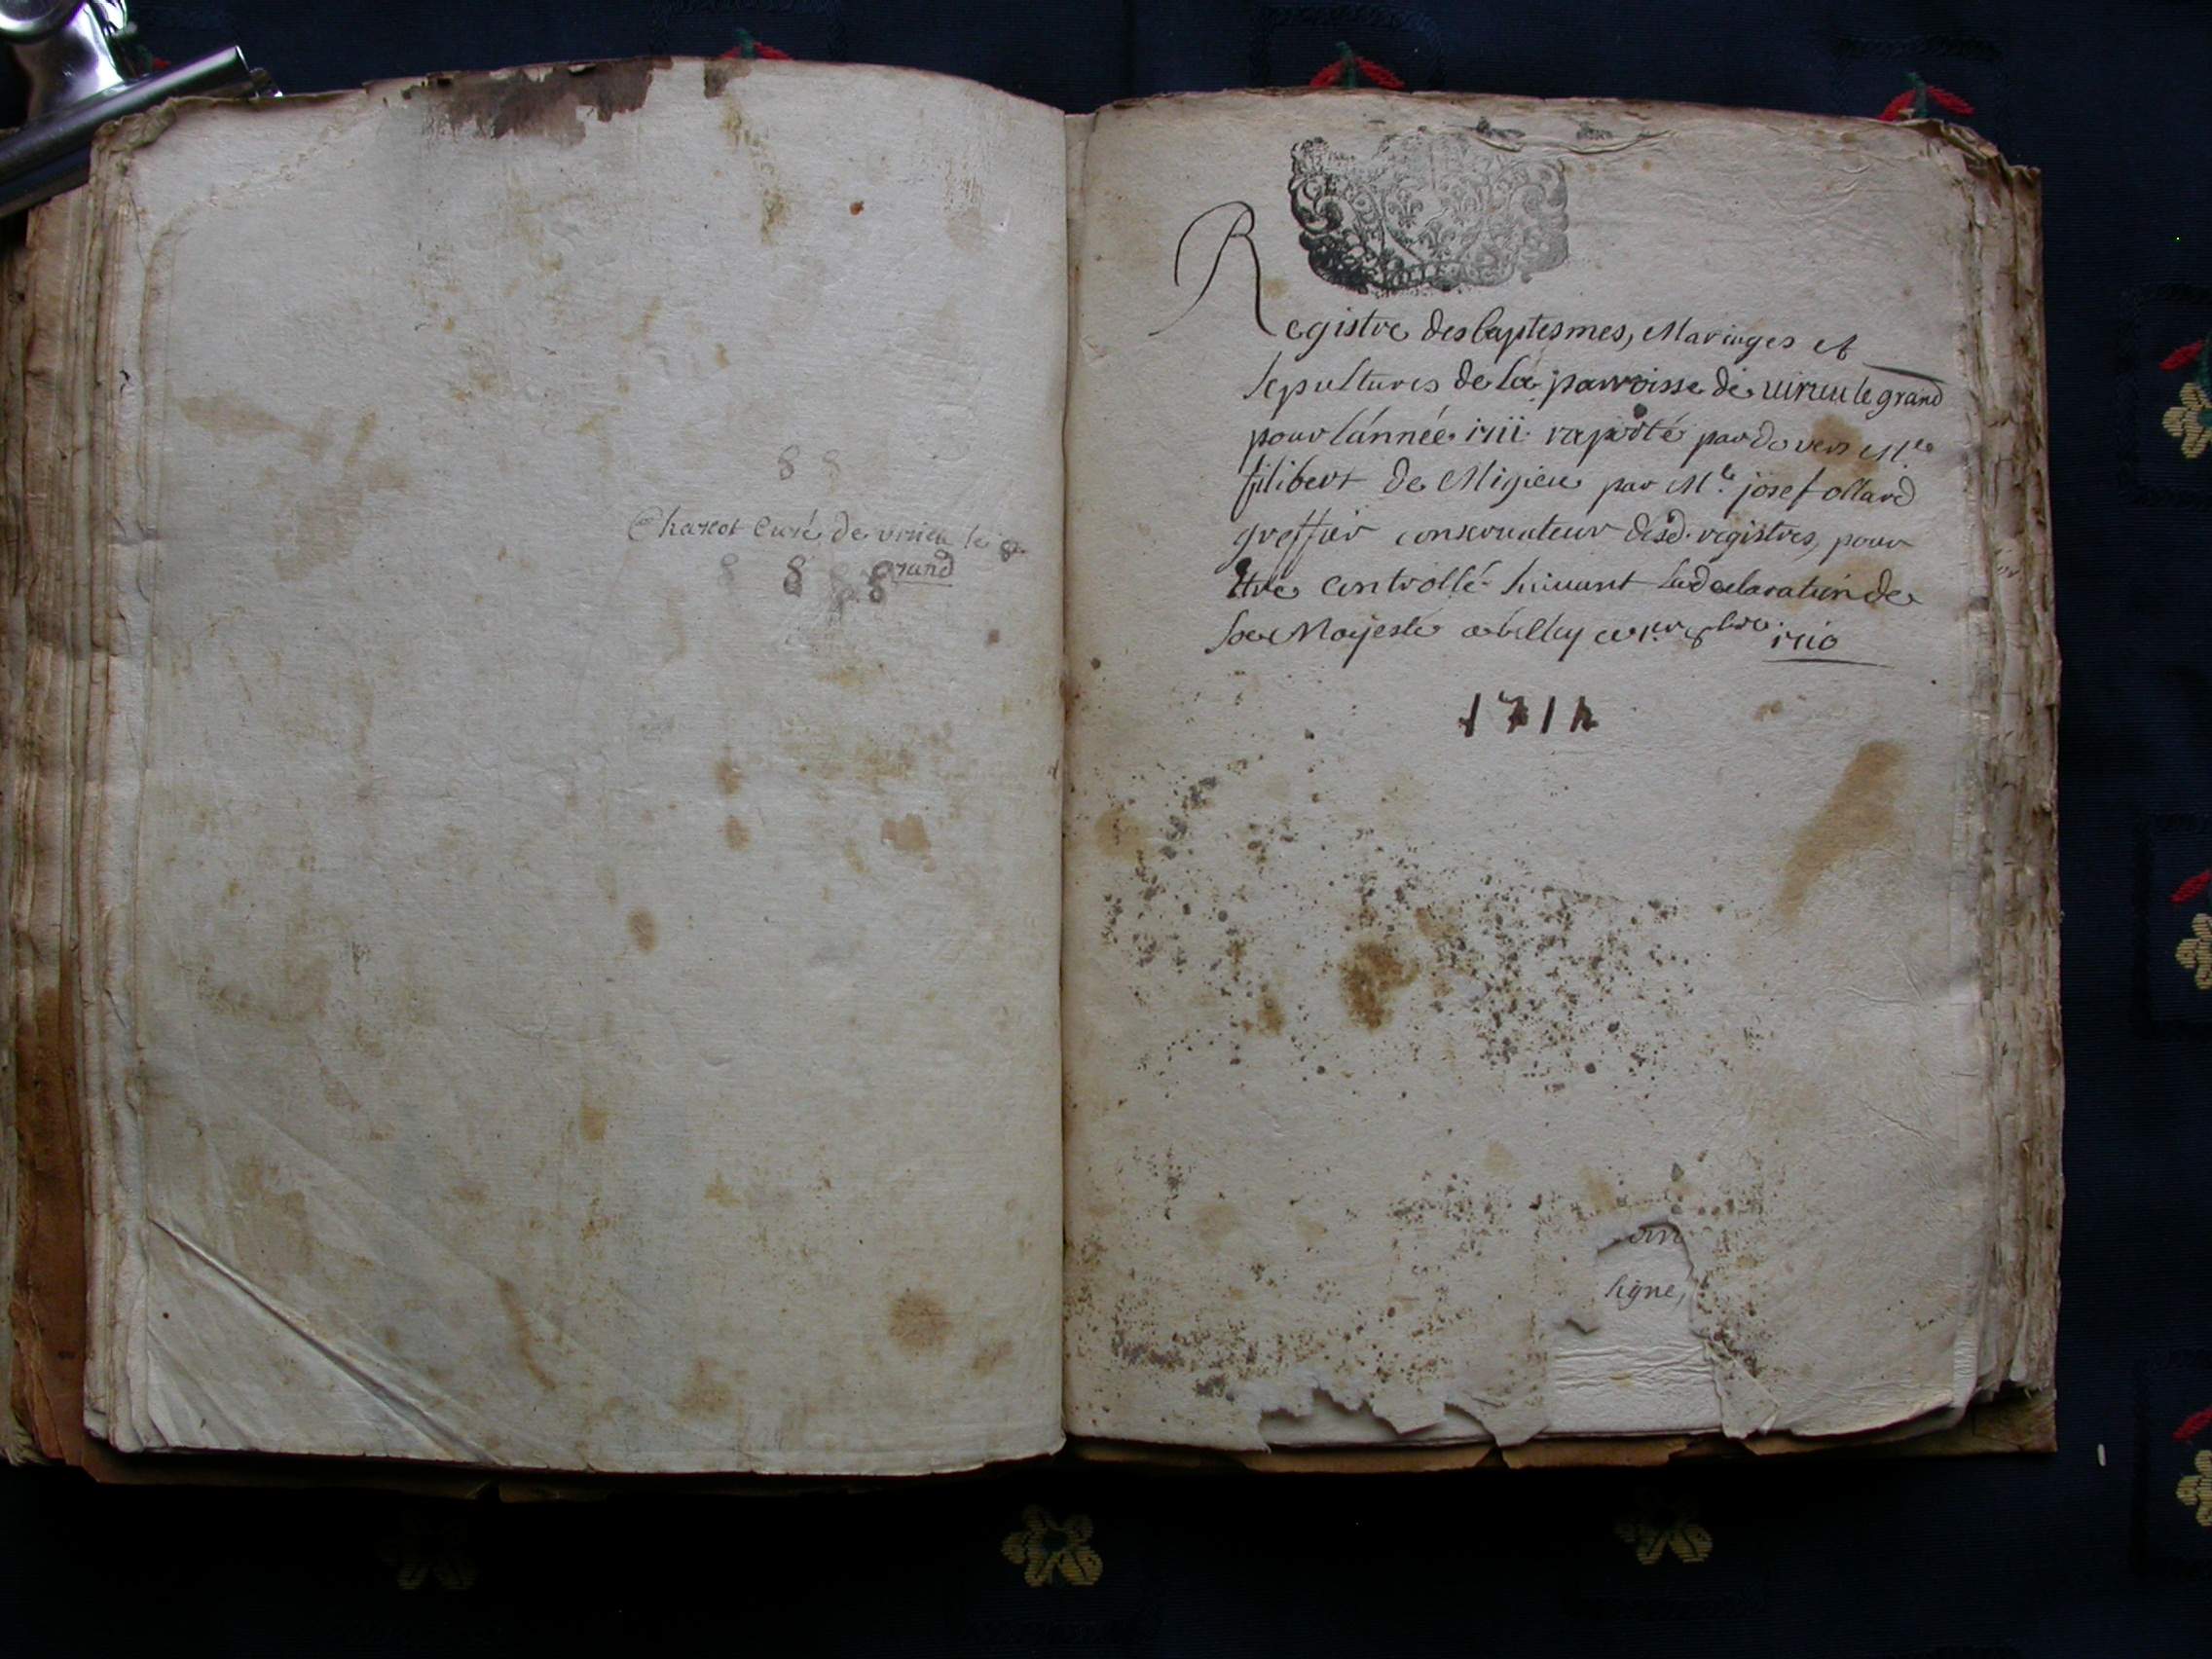 8 8
Charcot Curé de virieu le g
8 8 8 8 rand
Registre des baptesmes, Mariages et
sepultures de la parroisse de virieu le grand
pour lánnée 1711 raporté par devers Mre
filibert de Migieu par Me josef ollard
greffier conseruateur desd. registres, pour
étre controllé suiuant la declaration de
sa Majesté a belley ce 1er 8bre 1710
1711
vin
ligne,